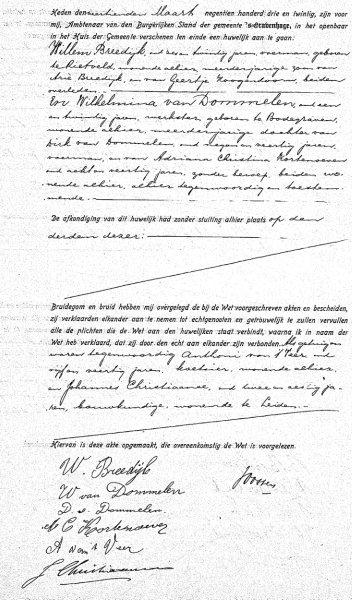 Heden den veertienden Maart negentien honderd drie en twintig, zijn voor
mij, Ambtenaar van den Burgerlijken Stand der gemeente 's-Gravenhage, in het openbaar
in het Huis der Gemeente verschenen ten einde een huwelijk aan te gaan:
Willem Breedijk, oud en twintig jaren, voerman, geboren
te Rietveld, wonende alhier, meerderjarige zoon van
Arie Breedijk, en van Geertje Hoogendoorn, beiden
overleden.
En Wilhelmina van Dommelen, oud een
en twintig jaren, geboren te Bodegraven,
wonende alhier, meerderjarige dochter van
Dirk van Dommelen, oud negen en veertig jaren,
voerman, en van Adriana Christina Kortenoeven
oud acht en veertig jaren, zonder beroep, beiden wo-
nende alhier, alhier tegenwoordig en toestem-
mende.
De afkondiging van dit huwelijk had zonder stuiting alhier plaats op den
derden dezer.
Bruidegom en bruid hebben mij overgelegd de bij de Wet voorgeschreven akten en bescheiden,
zij verklaarden elkander aan te nemen tot echtgenooten en getrouwelijk te zullen vervullen
alle de plichten die de Wet aan den huwelijken staat verbindt, waarna ik in naam der
Wet heb verklaard, dat zij door den echt aan elkander zijn verbonden. Als getuigen
waren tegenwoordig Anthoni van 't Veer oud
vijf en veertig jaren, koetsier, wonende alhier,
en Johannes Christiaanse, oud twee en zestig ja-
ren, bouwkundige, wonende te Leiden.
Hiervan is deze akte opgemaakt, die overeenkomstig de Wet is voorgelezen.
W. Breedijk
W van Dommelen
D. v. Dommelen.
A C Kortenoeven
A van 't Veer
J Christiaanse